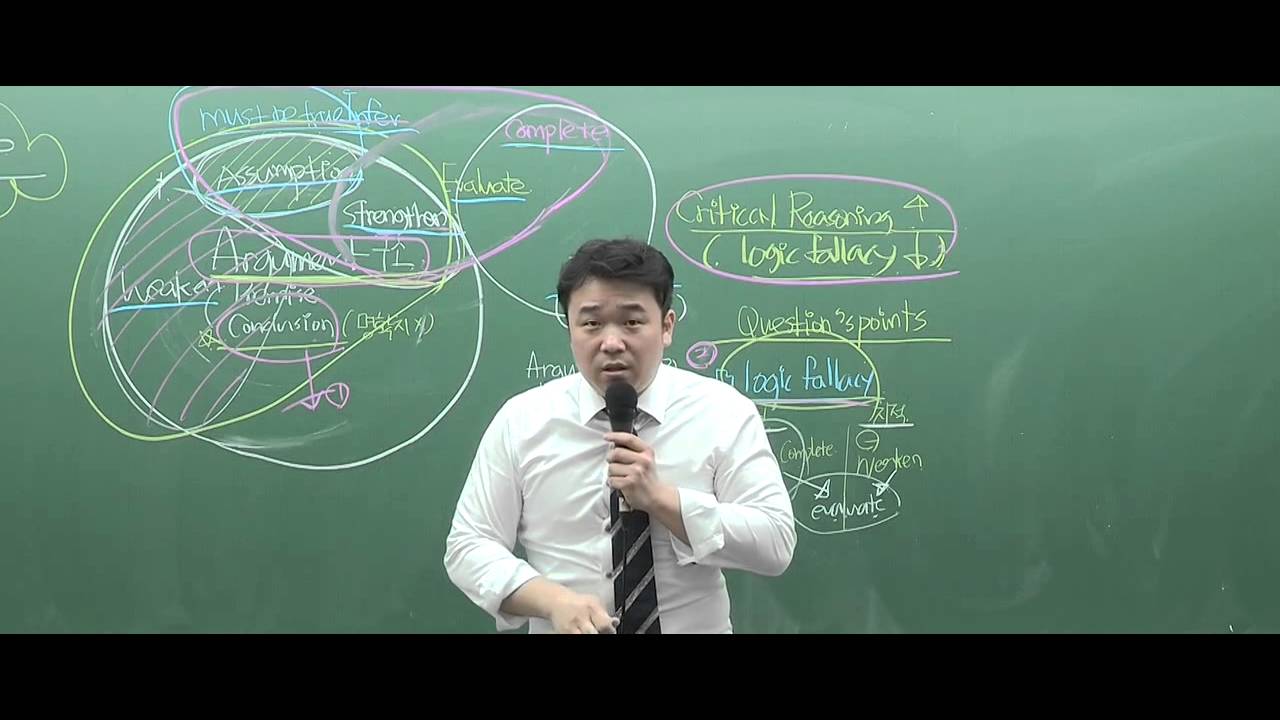 must be true infer
Assumption
Complete
Evaluate
strengthen
Argument
Weaken
Conclusion
①
Critical Reasoning ↑
( logic fallacy ↓ )
Question's points
②
logic fallacy
지적
Complete
⊖
Weaken
evaluate